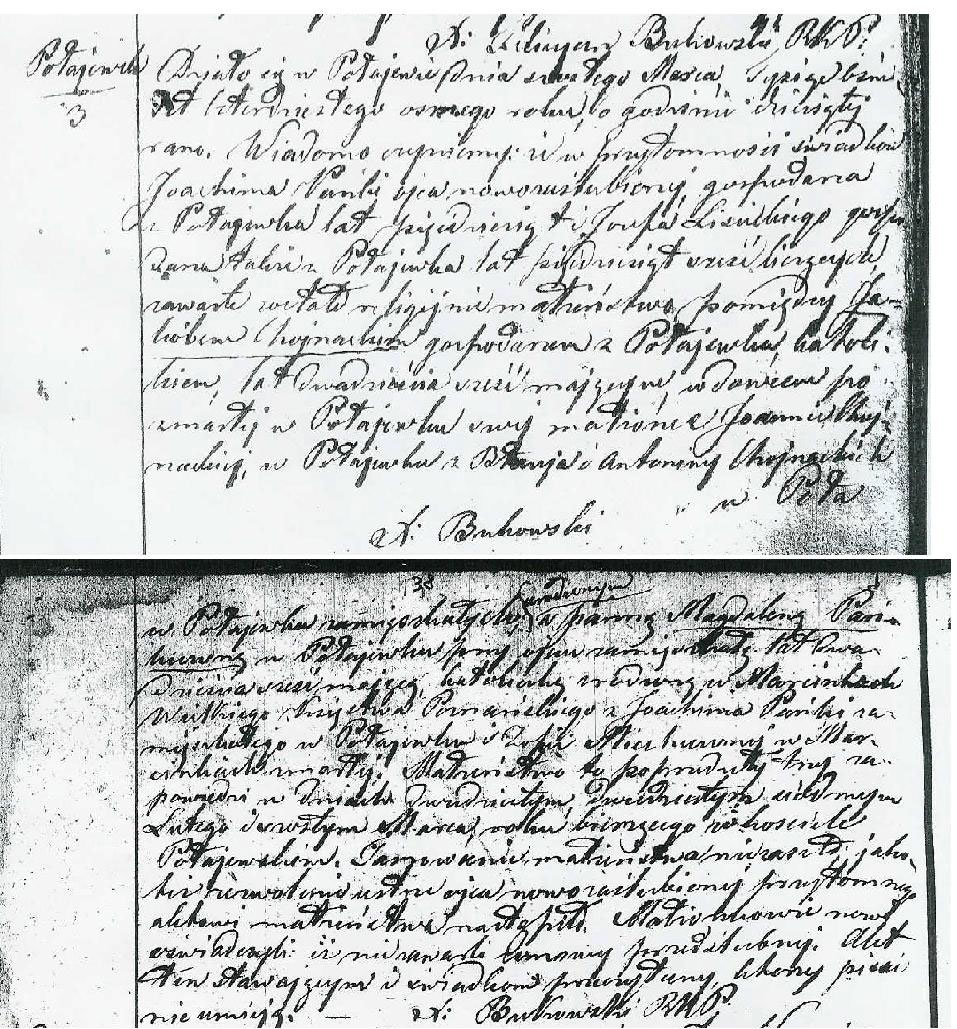 X. Bukowski, R.K.P.
Połajewek Działo się w Połajewie dnia szóstego Marca, Tysiąc ośm-
3 set czterdziestego osmego roku, o godzinie dziesiątej
rano. Wiadomo czyniemy: iż w przytomności świadków
Joachima Panki ojca nowozaślubionej gospodarza
z Połajewka lat pięćdziesiąt i Józefa gospo
darza także z Połajewka lat pięćdziesiąt sześć liczących,
zawarte zostało religijnie małżeństwo pomiędzy Ja-
kóbem Chojnackim gospodarzem z Połajewka, katoli-
kiem, lat dwadzieścia sześć mającym, wdowcem po
zmarłej w Połajewku swej małżonce Joannie Choj-
nackiej, w Połajewku z i Antoniny Chojnackich
w Poła
X. Bukowski
33
urodzonym
w Połajewku zamięszkałych, a panną Magdaleną Pan-
kówną w Połajewku przy ojcu zamięszkałą lat dwa-
dzieścia sześć mającą, katoliczką zrodzoną w Marcinkach
Wielkiego Xsięstwa Poznańskiego z Joachima Panki za-
mięszkałego w Połajewku i Zofii w Mar-
cinkach zmarłej. Małżeństwo to poprzedziły trzy za-
powiedzi w dniach dwudziestym, dwudziestym siódmym
Lutego i szóstym Marca, roku bieżącego w kościele
Połajewskim. Tamowanie małżeństwa nie zaszło, jako-
też zezwolenie ustne ojca nowozaślubionej przytomnego
aktowi małżeństwa nastąpiło. Małżonkowie nowi
oświadczyli: iż nie zawarli umowy przedślubnej. Akt
ten stawającym i świadkom przeczytany, którzy pisać
nie umieją. X. Bukowski R.K.P.